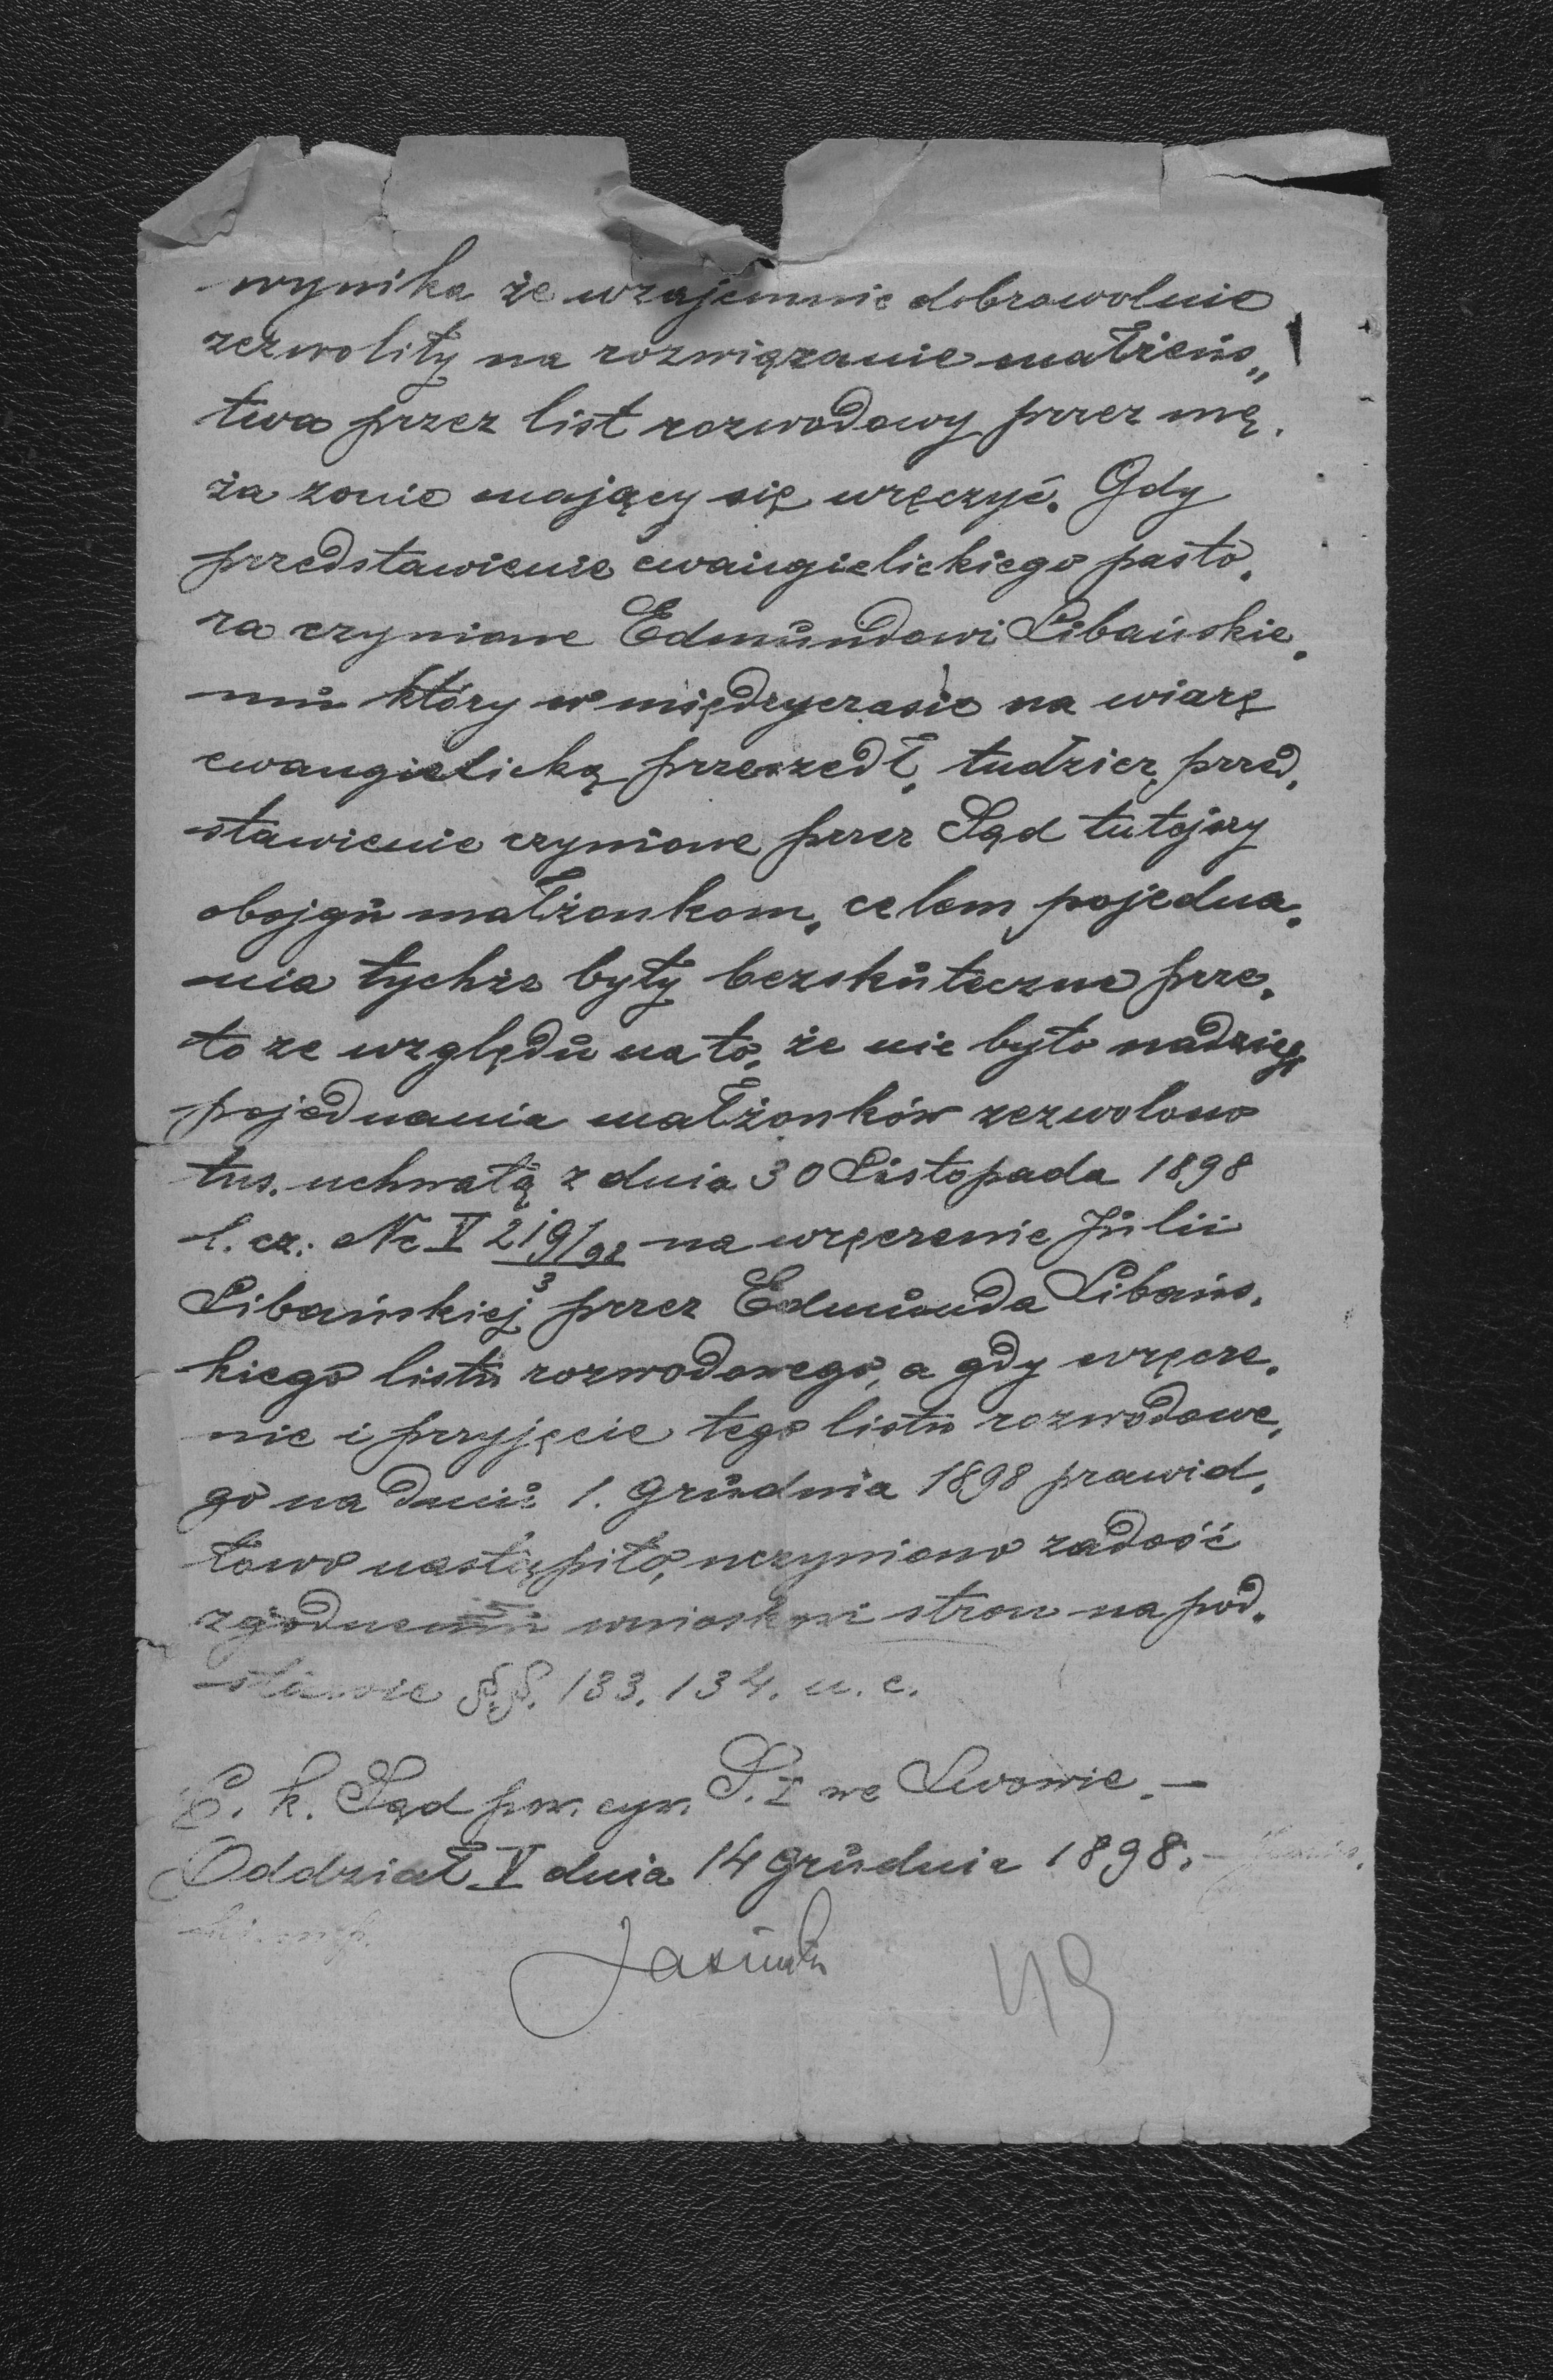 wynika że wzajemnie dobrowolnie
zezwoliły na rozwiązanie małżeńs„
twa przez list rozwodowy przez mę.
ża żonie mający się wręczyć. Gdy
przedstawienie ewangielickiego pasto.
ra czynione Edmundowi Libańskie.
mu który w międzyczasie na wiarę
ewangielicką przeszedł, tudzież przed.
stawienie czynione przez Sąd tutejszy
obojgu małżonkom, celem pojedna.
nia tychże były bezskuteczne prze.
to ze względu na to, że nie było nadzieji
pojednania małżonków zezwolono
tus. uchwałą z dnia 30 Listopada 1898
l. cz. Nc V 219/98 na wręczenie Julii
3
Libańskiej przez Edmunda Libańs.
kiego listu rozwodowego, a gdy wręcze.
nie i przyjęcie tego listu rozwodowe.
go na dniu 1. Grudnia 1898 prawid.
łowo nastąpiło, uczyniono zadość
zgodnemu wnioskowi stron na pod.
stawie §.§. 133. 134. u. c.
C. k. Sąd pow. cyw. S. I we Lwowie. —
Oddział V dnia 14 Grudnia 1898. —
49